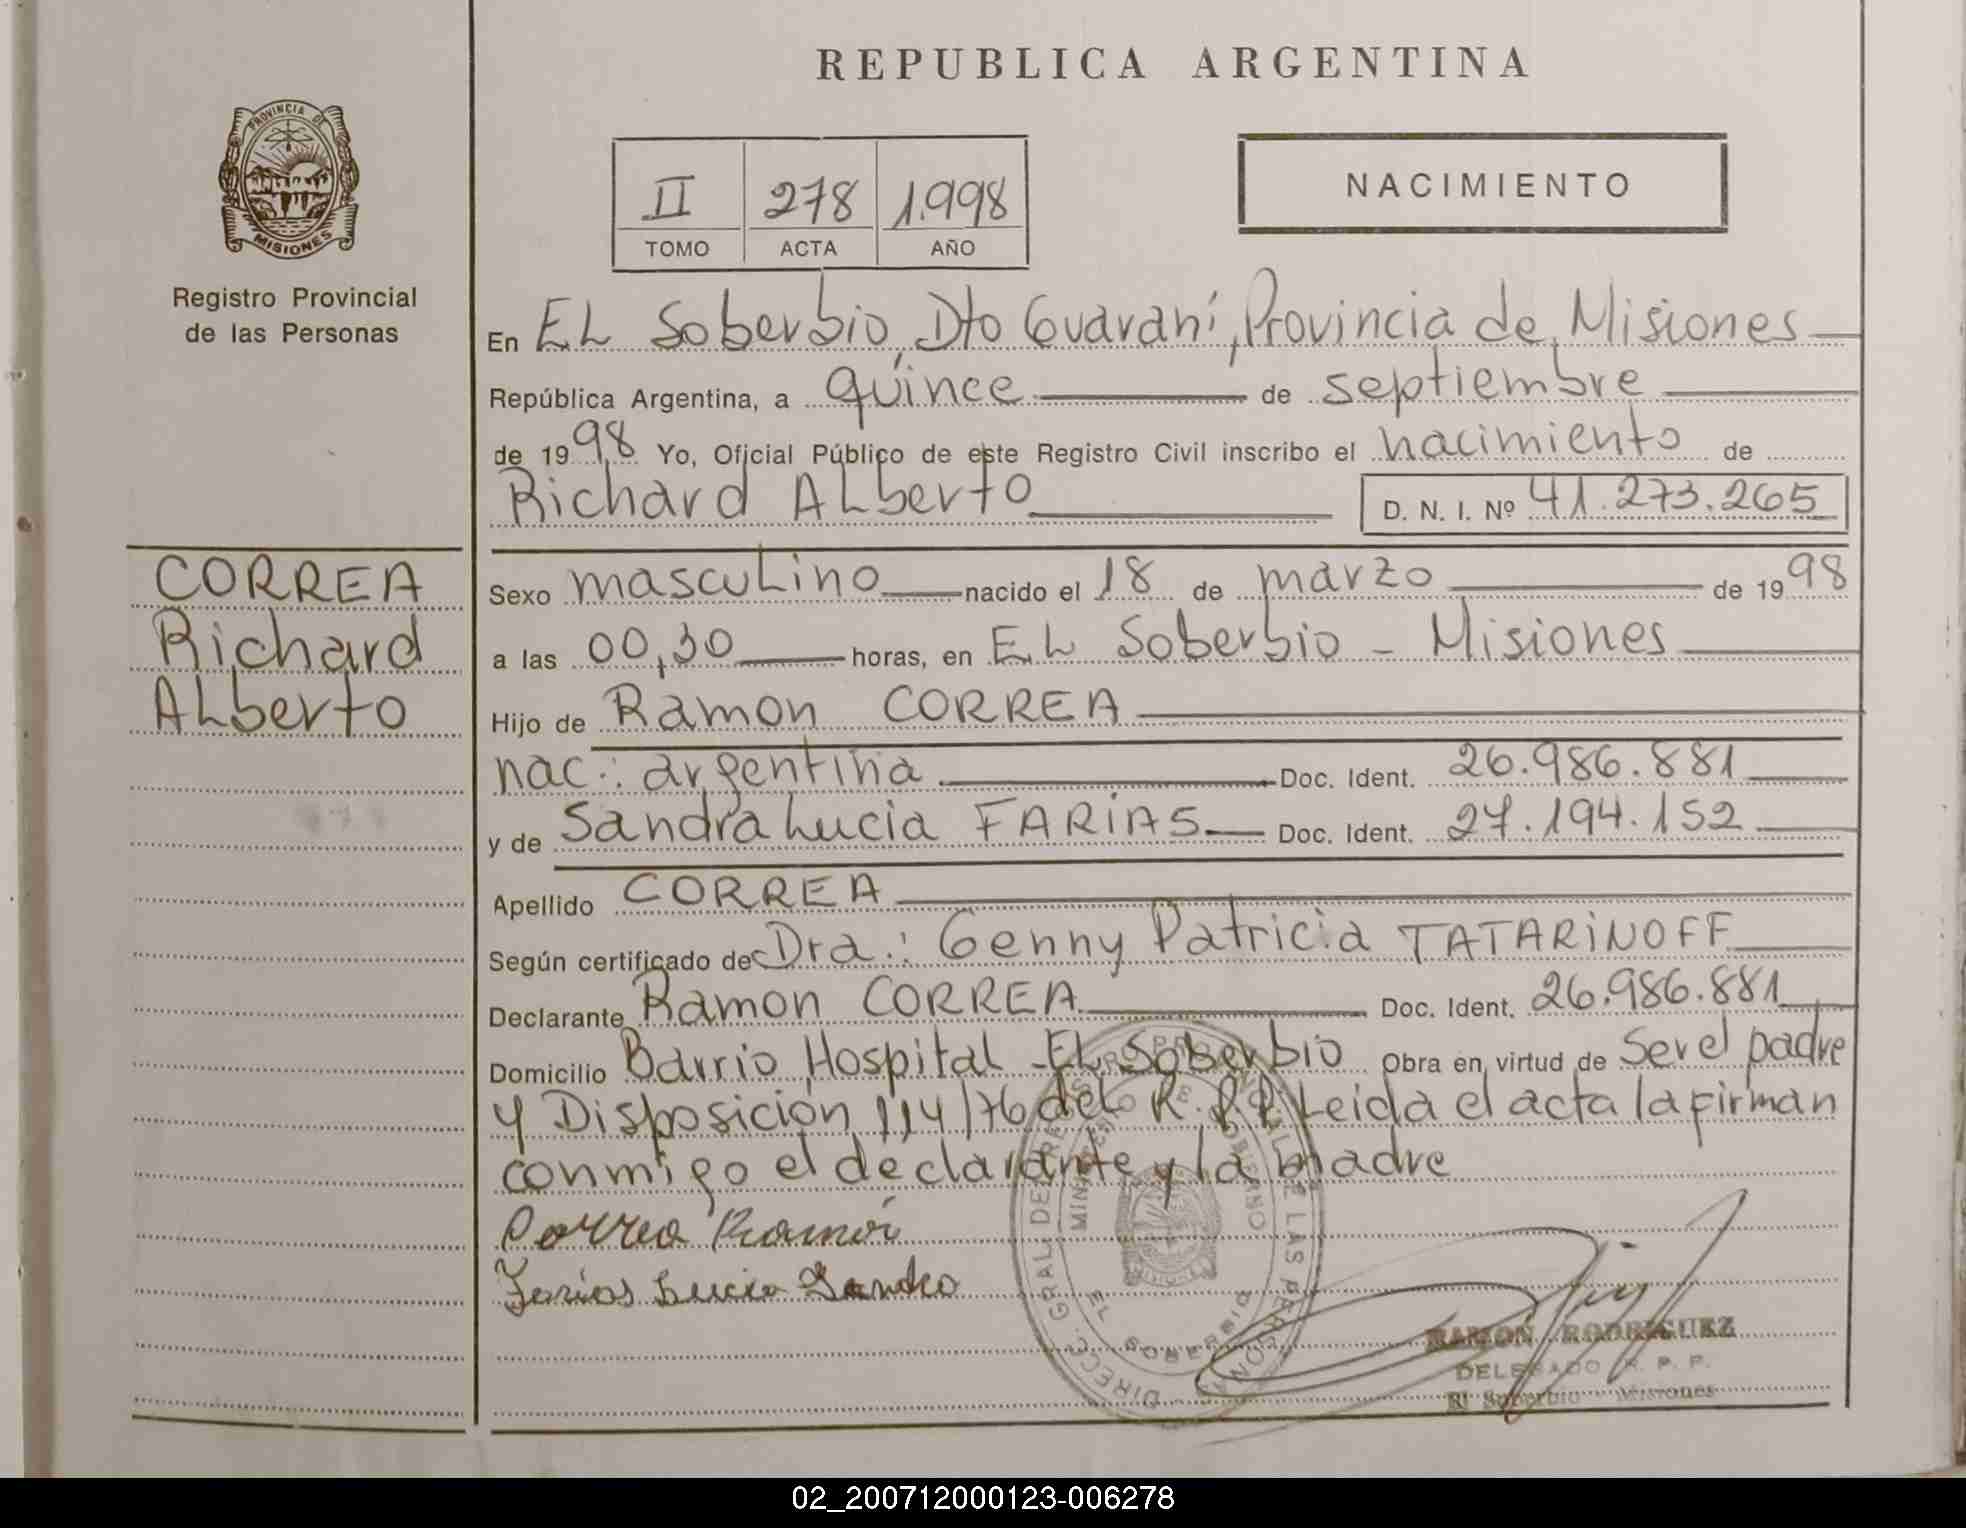 REPUBLICA ARGENTINA
PROVINCIA DE
MISIONES
Registro Provincial
de las Personas
II 278 1.998
TOMO ACTA AÑO
NACIMIENTO
En EL Soberbio, Dto Guaraní, Provincia de Misiones
República Argentina, a quince de septiembre
de 1998 Yo, Oficial Público de este Registro Civil inscribo el nacimiento de
Richard ALberto D. N. I. Nº 41.273.265
CORREA
Richard
ALberto
Sexo mascuLino nacido el 18 de marzo de 1998
a las 00,30 horas, en EL Soberbio - Misiones
Hijo de Ramon CORREA
nac.: argentina Doc. Ident. 26.986.881
y de Sandra Lucia FARiAS Doc. Ident. 27.194.152
Apellido CORREA
Según certificado de Dra.: Genny Patricia TATARiNOFF
Declarante Ramon CORREA Doc. Ident. 26.986.881
Domicilio Barrio Hospital EL Soberbio Obra en virtud de Ser el padre
y Disposición 114/76 del R.P.P Leida el acta la firman
conmigo el declarante y la madre
Correa Ramón
Farias Lucia Sandra
DIRECC. GRAL. DEL REGISTRO PROVINCIAL DE LAS PERSONAS
MINISTERIO DE GOBIERNO
EL SOBERBIO
RAMÓN RODRIGUEZ
DELEGADO R. P. P.
El Soberbio - Misiones
02_200712000123-006278